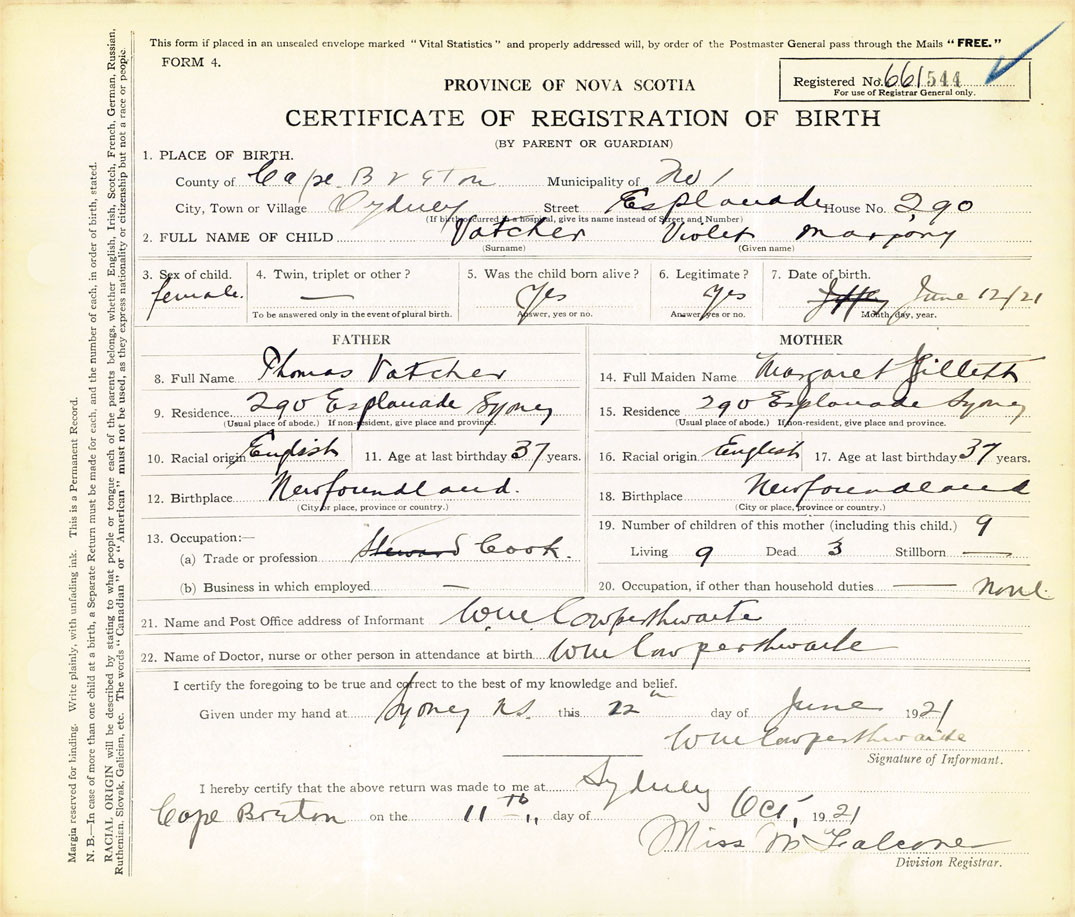 This form if placed in an unsealed envelope marked "Vital Statistics" and properly addressed will, by order of the Postmaster General pass through the Mails "FREE."
FORM 4.
Registered No. 661544
For use of Registrar General only.
PROVINCE OF NOVA SCOTIA
CERTIFICATE OF REGISTRATION OF BIRTH
(BY PARENT OR GUARDIAN)
1. PLACE OF BIRTH.
County of Cape Breton Municipality of No 1
City, Town or Village Sydney Street Esplanade House No. 290
(If birth occurred in a hospital, give its name instead of Street and Number)
2. FULL NAME OF CHILD Vatcher Violet Marjory
(Surname) (Given name)
3. Sex of child. 4. Twin, triplet or other? 5. Was the child born alive? 6. Legitimate? 7. Date of birth.
female. — Yes Yes June 12/21
To be answered only in the event of plural birth. Answer, yes or no. Answer, yes or no. Month, day, year.
FATHER
8. Full Name Thomas Vatcher
9. Residence 290 Esplanade Sydney
(Usual place of abode.) If non-resident, give place and province.
10. Racial origin English 11. Age at last birthday 37 years.
12. Birthplace Newfoundland.
(City or place, province or country.)
13. Occupation:—
(a) Trade or profession Steward Cook.
(b) Business in which employed —
MOTHER
14. Full Maiden Name Margaret Gillett
15. Residence 290 Esplanade Sydney
(Usual place of abode.) If non-resident, give place and province.
16. Racial origin English 17. Age at last birthday 37 years.
18. Birthplace Newfoundland
(City or place, province or country.)
19. Number of children of this mother (including this child.) 9
Living 9 Dead 3 Stillborn —
20. Occupation, if other than household duties — none.
21. Name and Post Office address of Informant Wm Cowperthwaite
22. Name of Doctor, nurse or other person in attendance at birth Wm Cowperthwaite
I certify the foregoing to be true and correct to the best of my knowledge and belief.
Given under my hand at Sydney N.S. this 12 day of June 1921
Wm Cowperthwaite
Signature of Informant.
I hereby certify that the above return was made to me at Sydney
Cape Breton on the 11th day of Oct, 1921
Miss M Falconer
Division Registrar.
Margin reserved for binding. Write plainly, with unfading ink. This is a Permanent Record.
N. B.—In case of more than one child at a birth, a Separate Return must be made for each, and the number of each, in order of birth, stated.
RACIAL ORIGIN will be described by stating to what people or tongue each of the parents belongs, whether English, Irish, Scotch, French, German, Russian,
Ruthenian, Slovak, Galician, etc. The words "Canadian" or "American" must not be used, as they express nationality or citizenship but not a race or people.